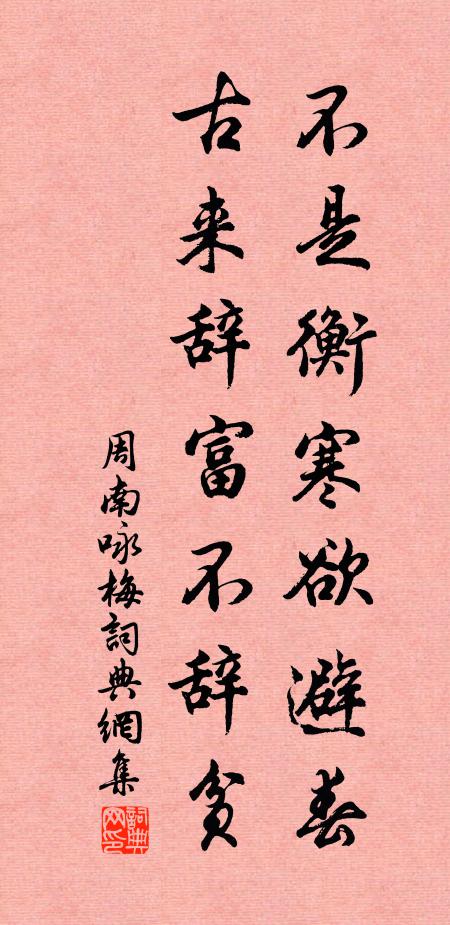 不是衡寒欲避春
古来辞富不辞贫
周南咏梅詞典網集
詞典网印